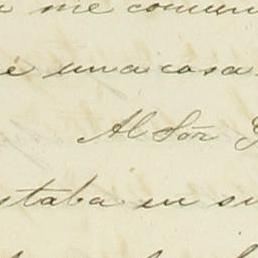 me comuni
é una cosa
Al Sõr
staba en su